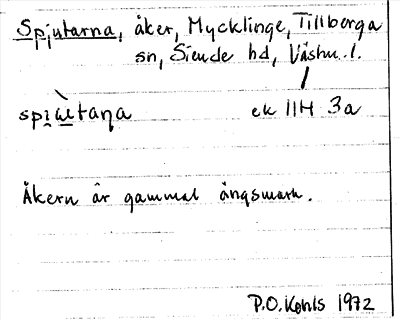 Spjutarna, åker, Mycklinge, Tillberga
sn, Siende hd, Västm. l.
ek 11H 3a
Åkern är gammal ängsmark.
P.O. Kohls 1972